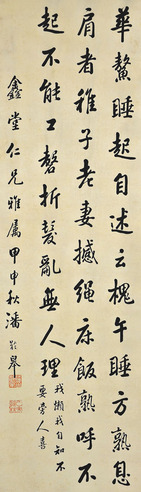 華鰲睡起自述云槐午睡方熟息
肩者稚子老妻撼绳床飯熟呼不
起不能工磬折髮亂無人理
我懶我自知不
要旁人喜
鑫堂仁兄雅屬甲申秋潘龄皋